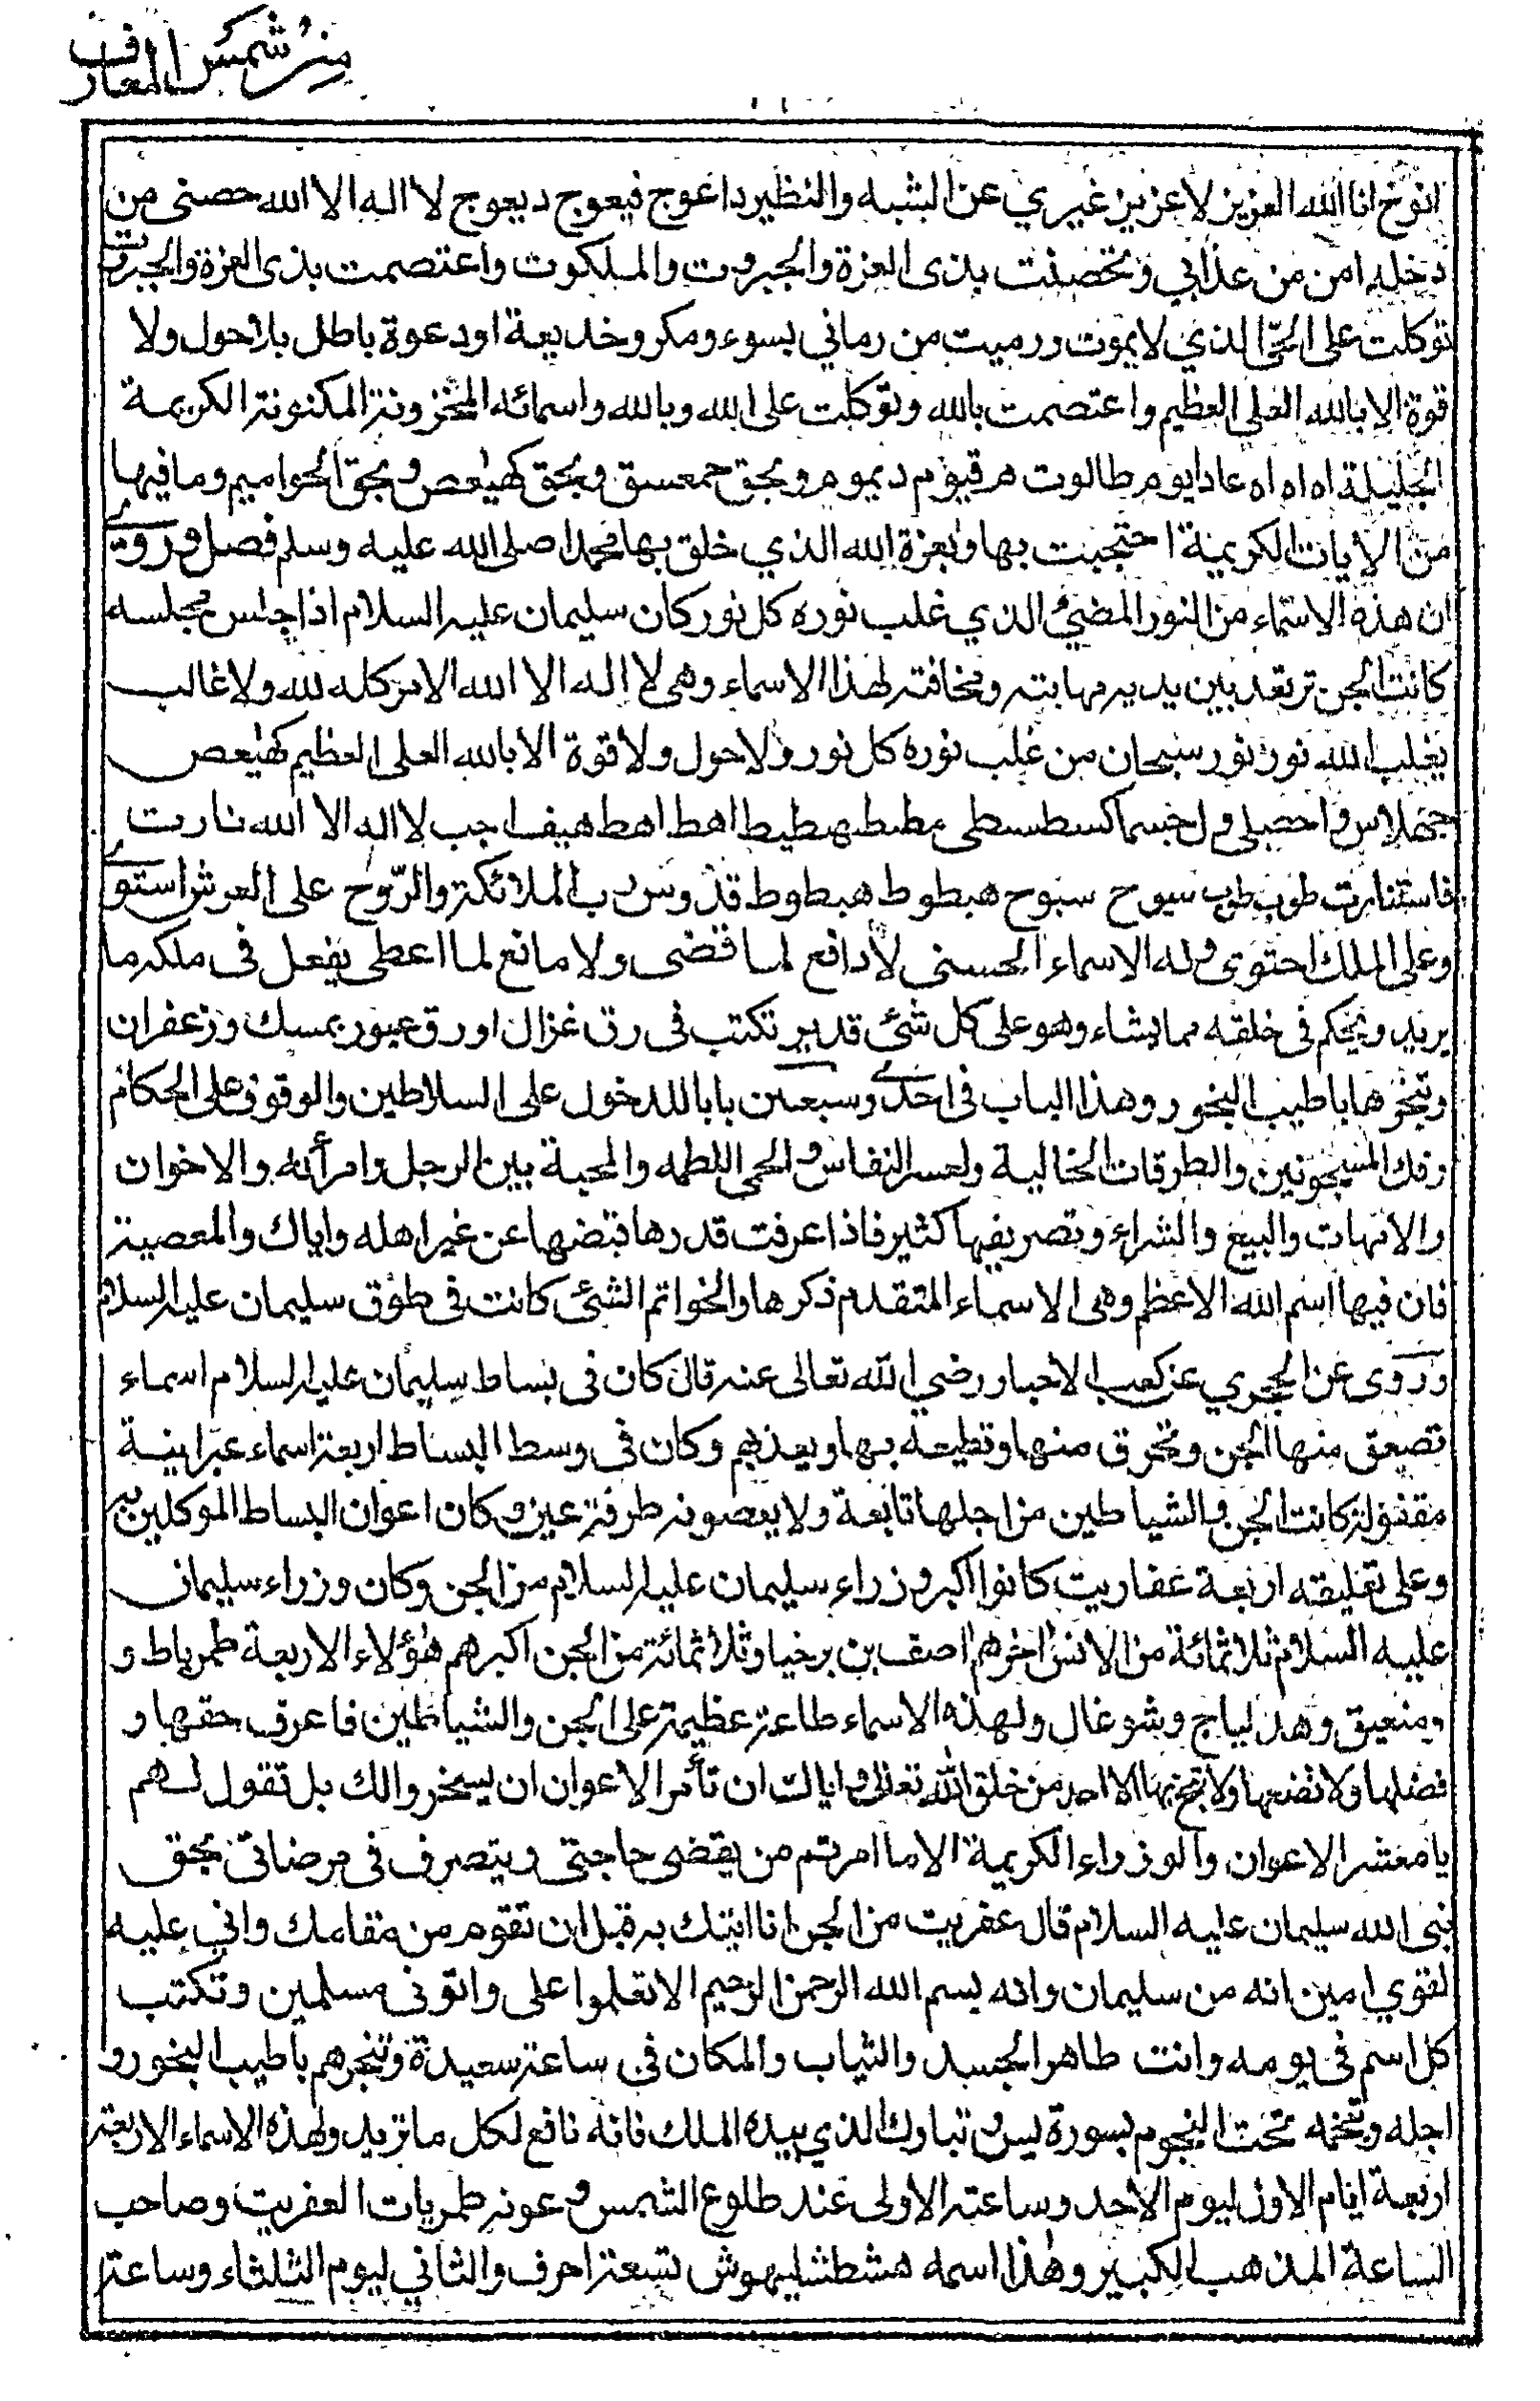 من شمس المعارف
انوخ انا الله العزيز لا عزيز غيري عن الشبه والنظير داعوج فيعوج ديعوج لا اله الا الله حصنى من
دخله امن من عذابي وتحصنت بذى العزة والجبروت والملكوت واعتصمت بذى العزة والجبروت
توكلت على الحّى الذي لا يموت ورميت من رماني بسوء ومكر وخديعة او دعوة باطل بلا حول ولا
قوة الا بالله العلى العظيم واعتصمت بالله وتوكلت على الله وبالله واسمائه المخزونة المكنونة الكريمة
الجليلة اه اه اه عاد ايوم طالوت مر قيوم ديموم وبحق حمعسق وبحق كهيعص وبحق الحواميم وما فيها
من الايات الكريمة احتجبت بها وبعزة الله الذي خلق بها محمدا صلى الله عليه وسلم فصل وروى
ان هذه الاسماء من النور المضيئ الذي غلب نوره كل نور كان سليمان عليه السلام اذا جلس مجلسه
كانت الجن ترتعد بين يديه مهابته ومخافته لهذا الاسماء وهى لا اله الا الله الامر كله لله ولا غالب
يغلب الله نور نور سبحان من غلب نوره كل نور ولا حول ولا قوة الا بالله العلى العظيم كهيعص
اهط اهط هيفا جب لا اله الا الله نارت
فاستنارت طوب طوب سيوح سبوح هبطوط هبطوط قدوس رب الملائكة والرّوح على العرش استوى
وعلى الملك احتوى وله الاسماء الحسنى لا دافع لما قضى ولا مانع لما اعطى يفعل فى ملكه ما
يريد ويحكم فى خلقه مما يشاء وهو على كل شئ قدير تكتب فى رق غزال او رق عبور بمسك وزعفران
وتبخرها باطيب البخور وهذا الباب فى احدى وسبعين بابا للدخول على السلاطين والوقوف على الحكام
وفك المسجونين والطرقات الخالية ولعسر النفاس والحمى اللطمه والمحبة بين الرجل وامرأته والاخوان
والامهات والبيع والشراء وتصريفها كثير فاذا عرفت قدرها فتضها عن غير اهله واياك والمعصية
فان فيها اسم الله الاعظم وهى الاسماء المتقدم ذكرها والخواتم الشئ كانت فى طوق سليمان عليه السلام
وروى عن الجحري عن كعب الاحبار رضي الله تعالى عنه قال كان فى بساط سليمان عليه السلام اسماء
تصعق منها الجن وتحرق منها وتطيعه بها ويعذبهم وكان فى وسط البساط اربعة اسماء عبرانية
مقفولة كانت الجن والشياطين من اجلها تابعة ولا يعصونه طرفة عين وكان اعوان البساط الموكلين به
وعلى تعليقه اربعة عفاريت كانوا اكبر وزراء سليمان عليه السلام من الجن وكان وزراء سليمان
عليه السلام ثلاثمائة من الانس اخرهم اصف بن برخيا وثلاثمائة من الجن اكبرهم هؤلاء الاربعة طمرياط و
ومنعيق وهدلياج وشوغال ولهذه الاسماء طاعة عظيمة على الجن والشياطين فاعرف حقها و
فضلها ولا تضعها ولا تبح بها الا احد من خلق الله تعالى واياك ان تأمر الاعوان ان يسخروا لك بل تقول لهم
يا معشر الاعوان والوزراء الكريمة الا ما امرتم من يقضى حاجتى ويتصرف فى مرضاتى بحق
نبى الله سليمان عليه السلام قال عفريت من الجن انا اتيك به قبل ان تقوم من مقامك واني عليه
لقوي امين انه من سليمان وانه بسم الله الرحمن الرحيم الا تعلوا على واتونى مسلمين وتكتب
كل اسم فى يومه وانت طاهر الجسد والثياب والمكان فى ساعة سعيدة وتبخرهم باطيب البخور و
اجله وتنجمه تحت النجوم بسورة يس وتبارك الذي بيده الملك فانه نافع لكل ما تريد ولهذه الاسماء الاربعة
اربعة ايام الاول ليوم الاحد وساعته الاولى عند طلوع الشمس وعونه طمريات العفريت وصاحب
الساعة المذهب الكبير وهذا اسمه هشطشليهوش تسعة احرف والثاني ليوم الثلثاء وساعته